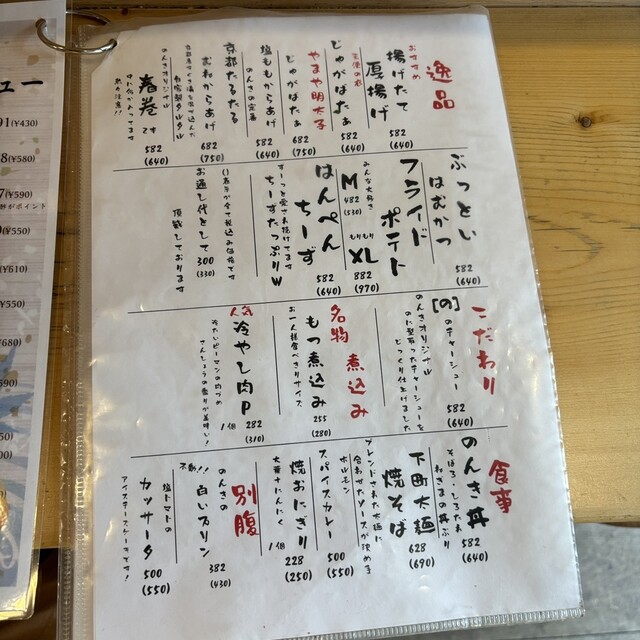 逸品
おすすめ
揚げたて
厚揚げ
582
(640)
じゃがばたぁ
582
(640)
やまや明太子
じゃがばたぁ
682
(750)
塩ももからあげ
のんきの定番
582
(640)
京都たるたる
むねからあげ
自家製タルタル
682
(750)
のんきオリジナル
春巻です
熱々注意!!
582
(640)
ぶっとい
はむかつ
582
(640)
フライド
ポテト
みんな大好き
M
482
(530)
もりもり
XL
882
(970)
はんぺん
ちーず
ずーっと愛され続けてます
ちーずたっぷりW
582
(640)
()表示が全て税込み価格です
お通し代として300
(330)
頂戴しております
こだわり
[の]
のチャーシュー
582
(640)
のんきオリジナル
のに型取ったチャーシューを
じっくり仕上げました
名物 煮込み
もつ煮込み
お一人様食べきりサイズ
255
(280)
人気
冷やし肉P
1個
282
(310)
冷たいピーマンの肉づめ
さんしょうの香りが美味い!
食事
のんき丼
582
(640)
そぼろ・しろたれ
ねぎまの丼ぶり
下町太麺
焼そば
628
(690)
ブレンドされた太麺に
合わせたソースが決め手
ホルモン
スパイスカレー
500
(550)
焼おにぎり
1個
228
(250)
大葉+にんにく
別腹
のんきの
白いプリン
382
(430)
不動!!
塩トマトの
カッサータ
500
(550)
アイスチーズケーキです!
ュー
91(¥430)
8(¥580)
7(¥590)
がポイント
(¥550)
(¥610)
¥550)
¥680)
¥590)
¥550)